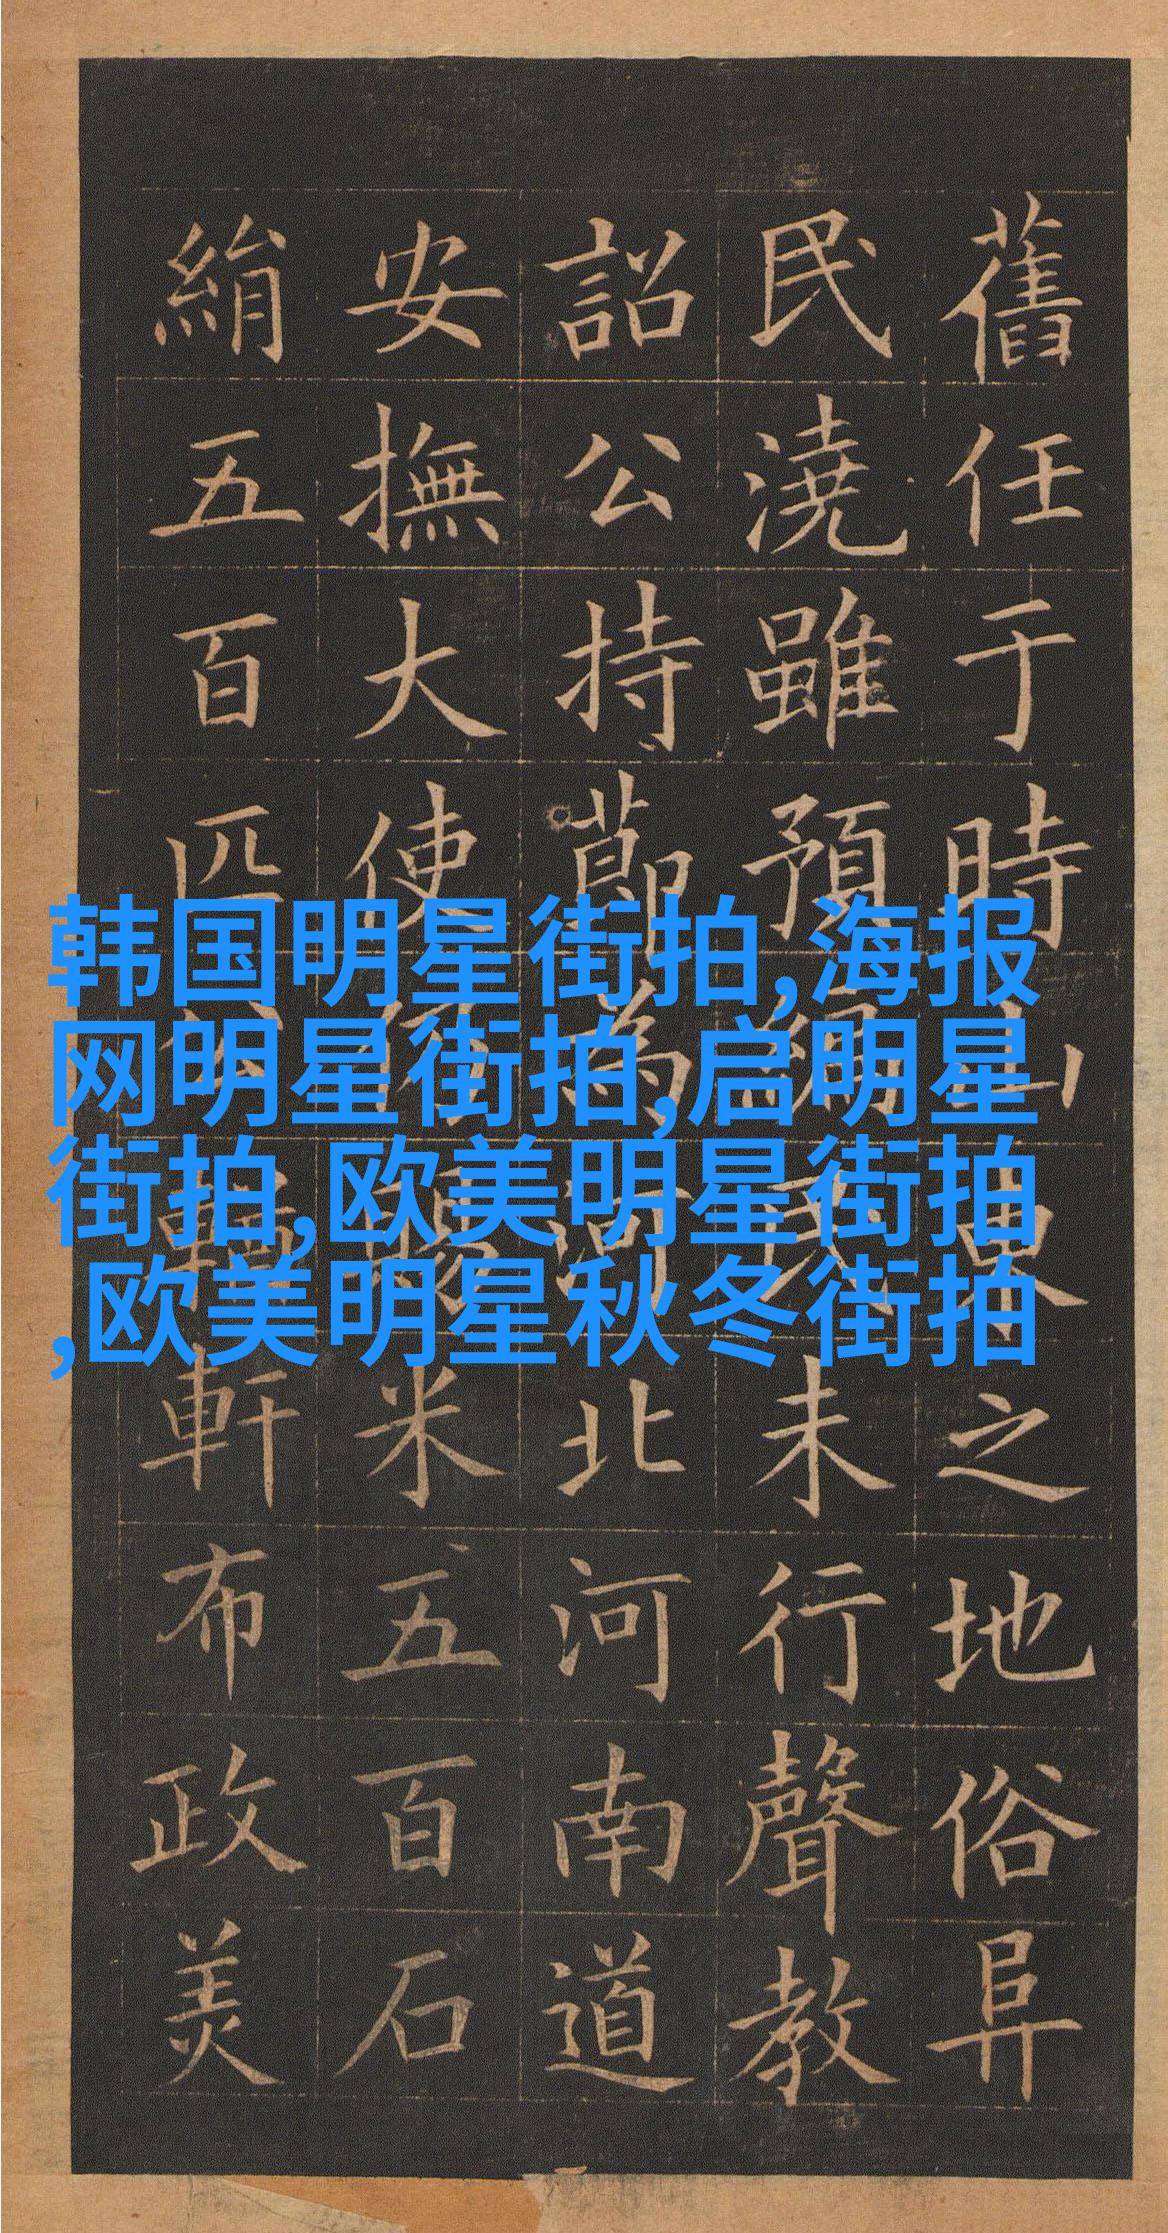 舊任于時山東之地俗阜
民澆雖預編民未行聲教
詔公持節為河北河南道
安撫大使仍賜米五百石
絹五百匹公輶軒布政美
韩国明星街拍,海报
网明星街拍,启明星
街拍,欧美明星街拍
,欧美明星秋冬街拍